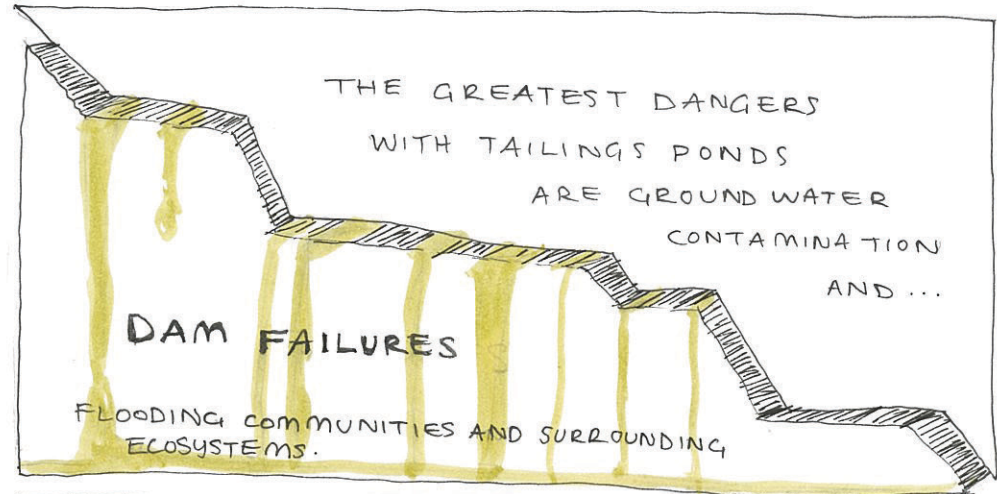 THE GREATEST DANGERS
WITH TAILINGS PONDS
ARE GROUND WATER
CONTAMINATION
AND...
DAM FAILURES
FLOODING COMMUNITIES AND SURROUNDING
ECOSYSTEMS.